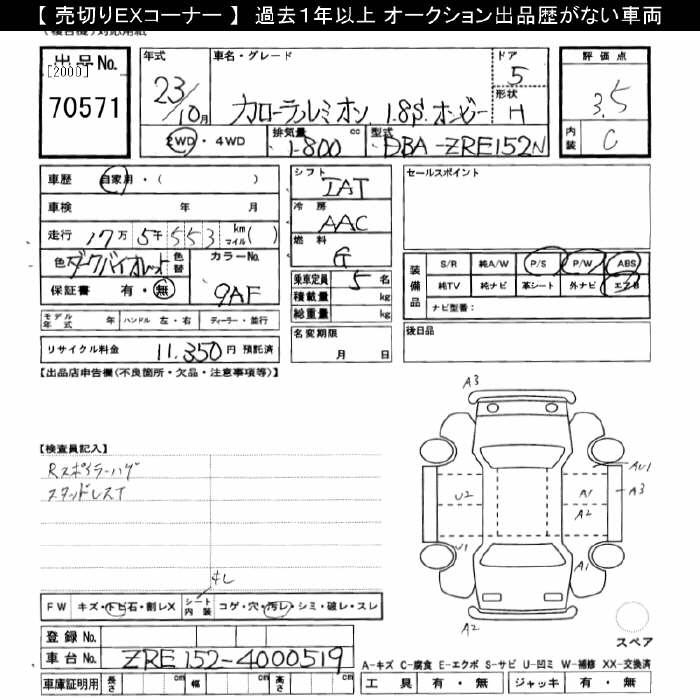 【 売切りEXコーナー 】 過去1年以上 オークション出品歴がない車両
出品No. [2000] 70571
年式 23/10月
車名・グレード カローラルミオン 1.8S オンビー
ドア 5
形状 H
2WD・4WD
排気量 1800 cc
型式 DBA-ZRE152N
評価点 3.5
内装 C
車歴 自家用・( )
車検 年 月
走行 17万5千553 km マイル( )
色 ダークバイオレット 色替 カラーNo. 9AF
保証書 有・無
モデル年式 年 ハンドル 左・右 ディーラー・並行
リサイクル料金 11,350円 預託済
シフト IAT
冷房 AAC
燃料 G
乗車定員 5 名
積載量 kg
総重量 kg
名変期限 月 日
セールスポイント
装備品
S/R 純A/W P/S P/W ABS
純TV 純ナビ 革シート 外ナビ エアB
ナビ型番:
後日品
【出品店申告欄(不良箇所・欠品・注意事項等)】
【検査員記入】
Rスポイラーハゲ
スタッドレスT
キレ
FW キズ・トビ石・割レX シート内装 コゲ・穴・汚レ・シミ・破レ・スレ
登録No.
車台No. ZRE152-4000519
車庫証明用 長さ cm 幅 cm 高さ cm
A3
AU1
A3
U2
A1
A2
U1
A1
A2
スペア
A-キズ C-腐食 E-エクボ S-サビ U-凹ミ W-補修 XX-交換済
工具 有・無 ジャッキ 有・無